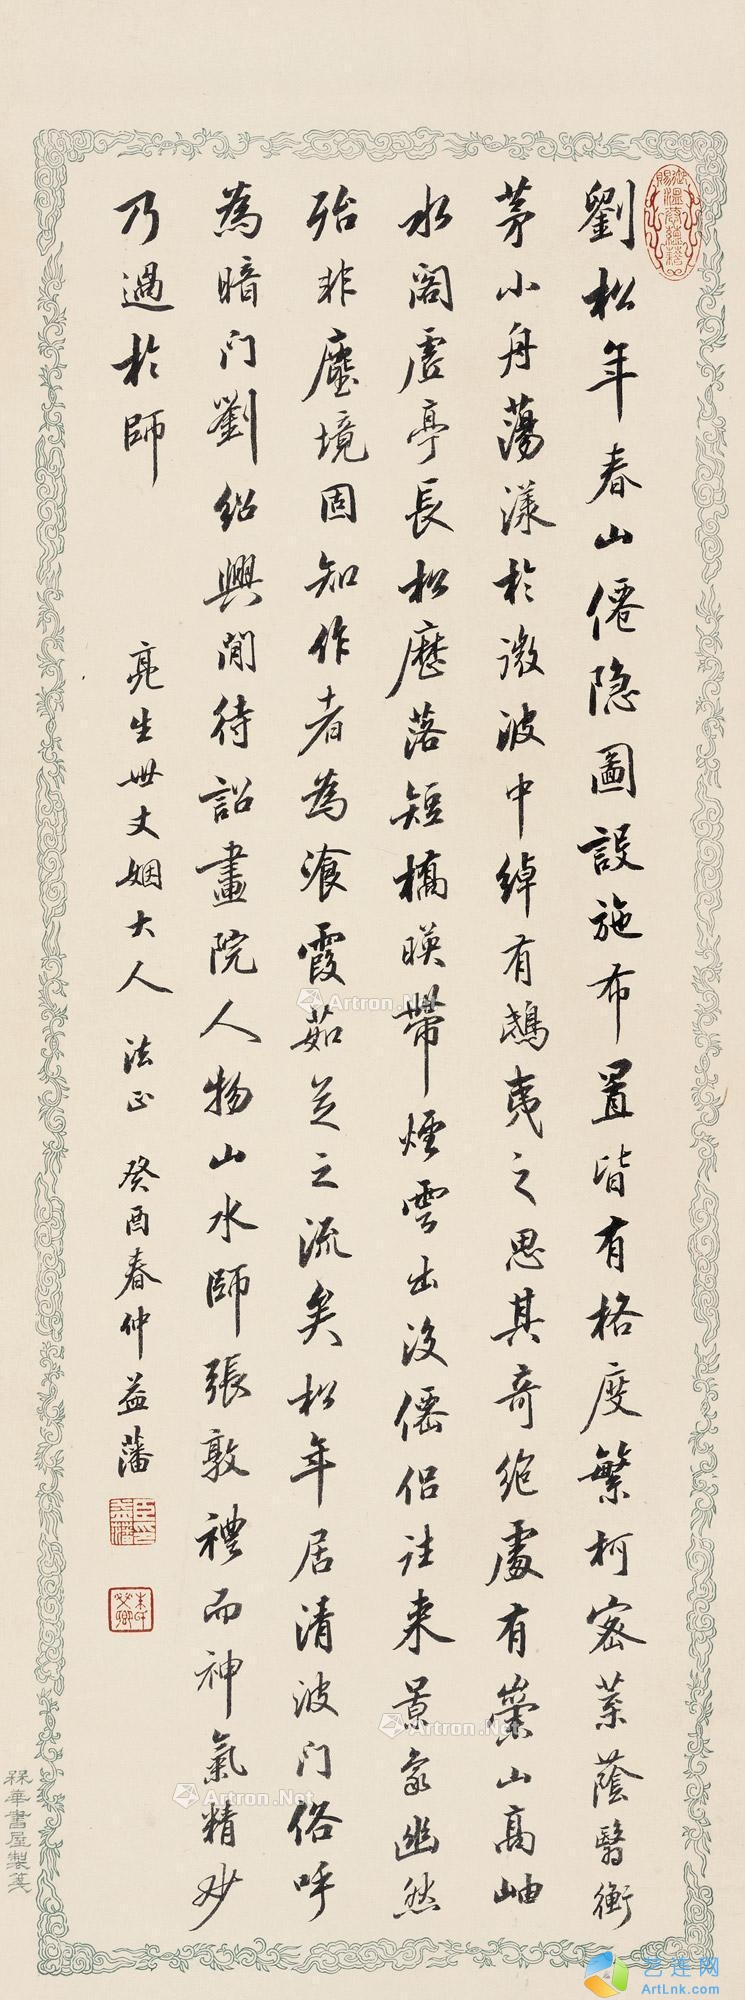 劉松年春山僊隐圖設施布置皆有格度繁柯密葉蔭翳衡
茅小舟蕩漾於微波中綽有鴟夷之思其奇絶處有崇山高岫
水阁虛亭長松歷落短橋暎帶煙雲出没僊侣往来景象幽然
殆非塵境固知作者為飡霞茹芝之流矣松年居清波门俗呼
為暗门劉紹興間待詔畫院人物山水師張敦禮而神氣精妙
乃過於師
亮生世丈姻大人 法正 癸酉春仲益藩
臣益藩
艾卿
書屋製箋
Artron.Net
Artron.Net
Artron.Net
艺连网
ArtLnk.com